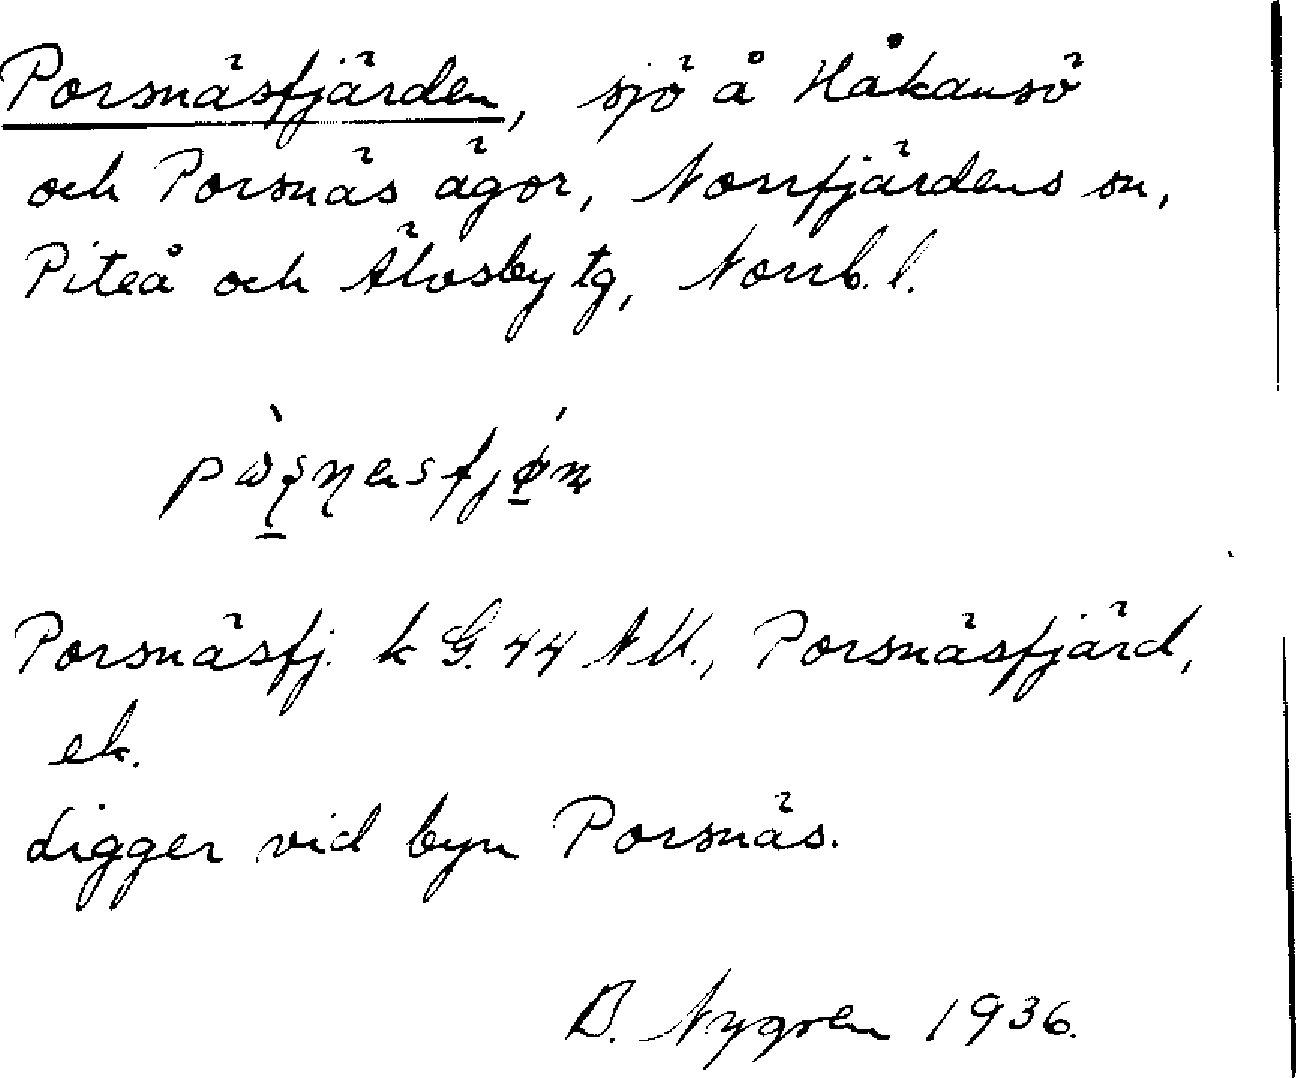 Porsnäsfjärden, sjö å Håkansö
och Porsnäs ägor, Norrfjärdens sn,
Piteå och Älvsby tg, Norrb. l.
Porsnäsfj. k G. 44 NV., Porsnäsfjärd,
ek.
Ligger vid byn Porsnäs.
B. Nygren 1936.